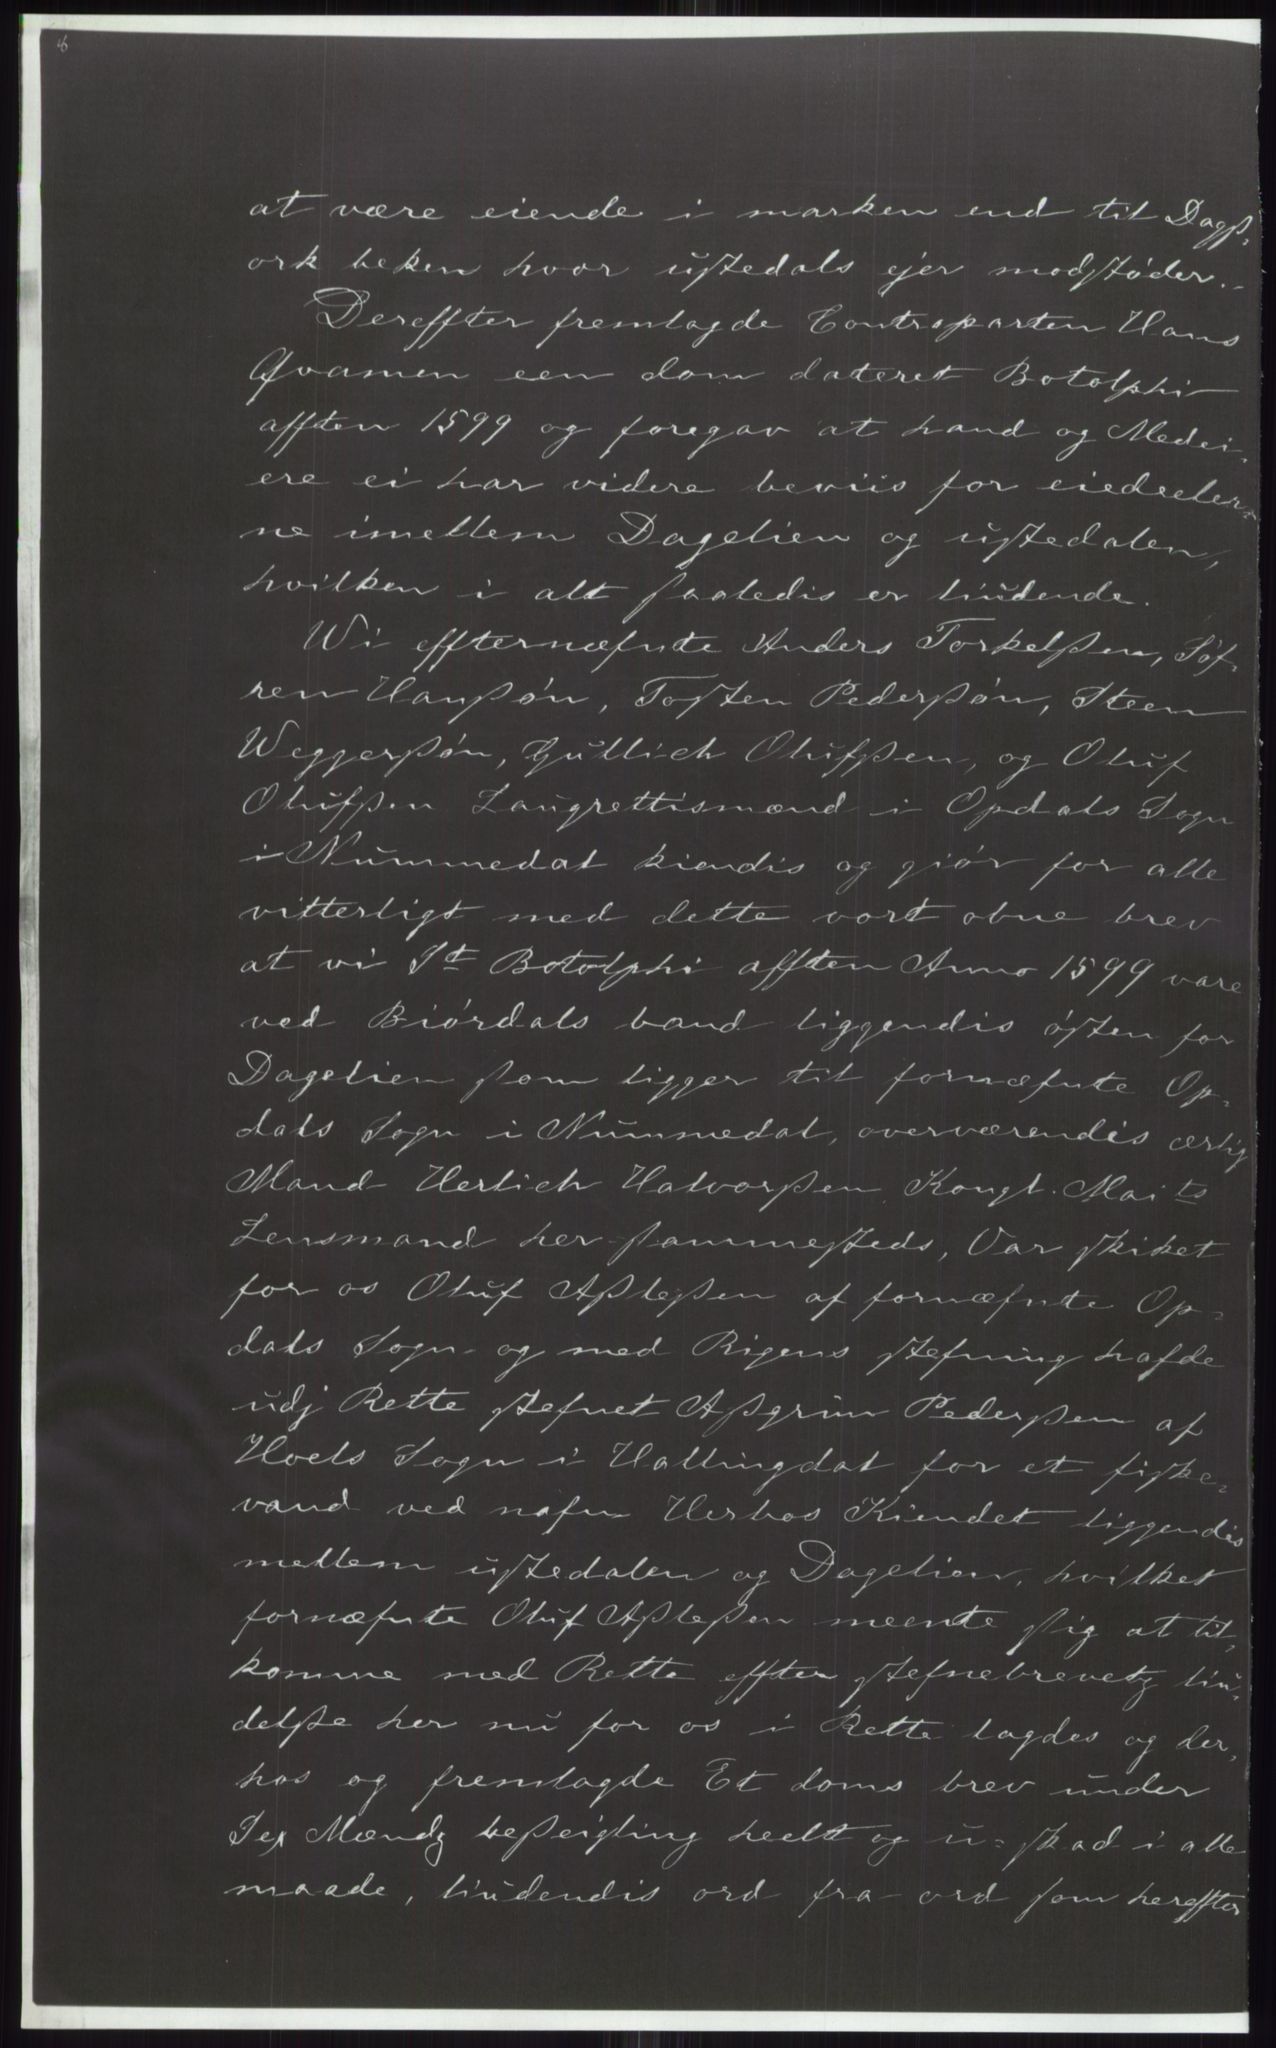 at være eiende i marken end til Dagß-
ork beken hvor ustedals ejer modstøder.-
Dereffter fremlagde Contraparten Hans
Qvamen een dom dateret Botolphi
afften 1599 og foregav at hand og Medei-
ere ei har videre beviis for eiedeeler-
ne imellem Dagelien og ustedalen,
hvilken i alt saaledis er liudende.
Wi effternæfnte Anders Torkelßen, Søf-
ren Hanßøn, Tosten Pederßøn, Steen
Weggerßøn, Gullich Olufßen, og Oluf
Olufßen Laugrettismænd i Opdals Sogn
i Nummedal kiendis og giør for alle
vitterligt med dette vort obne brev
at vi St Botolphi afften Anno 1599 vare
ved Biørdals vand liggendis østen for
Dagelien som ligger til fornæfnte Op-
dals Sogn i Nummedal, overværendis ærlig
Mand Herlich Halvorßen Kongl. Maits
Lensmand her sammesteds, Var skiket
for os Oluf Aßleßen af fornæfnte Op-
dals Sogn og med Rigens stefning hafde
udj Rette stefnet Aßgrim Pederßen af
Hoels Sogn i Hallingdal for et fiske-
vand ved nafn Herbos Kiendet liggendis
mellem ustedalen og Dagelien, hvilket
fornæfnte Oluf Aßleßen meente sig at til-
komme med Rette effter stefnebrevetz liu-
delße her nu for os i Rette lagdes og der-
hos og fremlagde Et doms brev under
Sex Mændz beßeigling heelt og u-skad i alle
maade, liudendis ord fra ord som hereffter